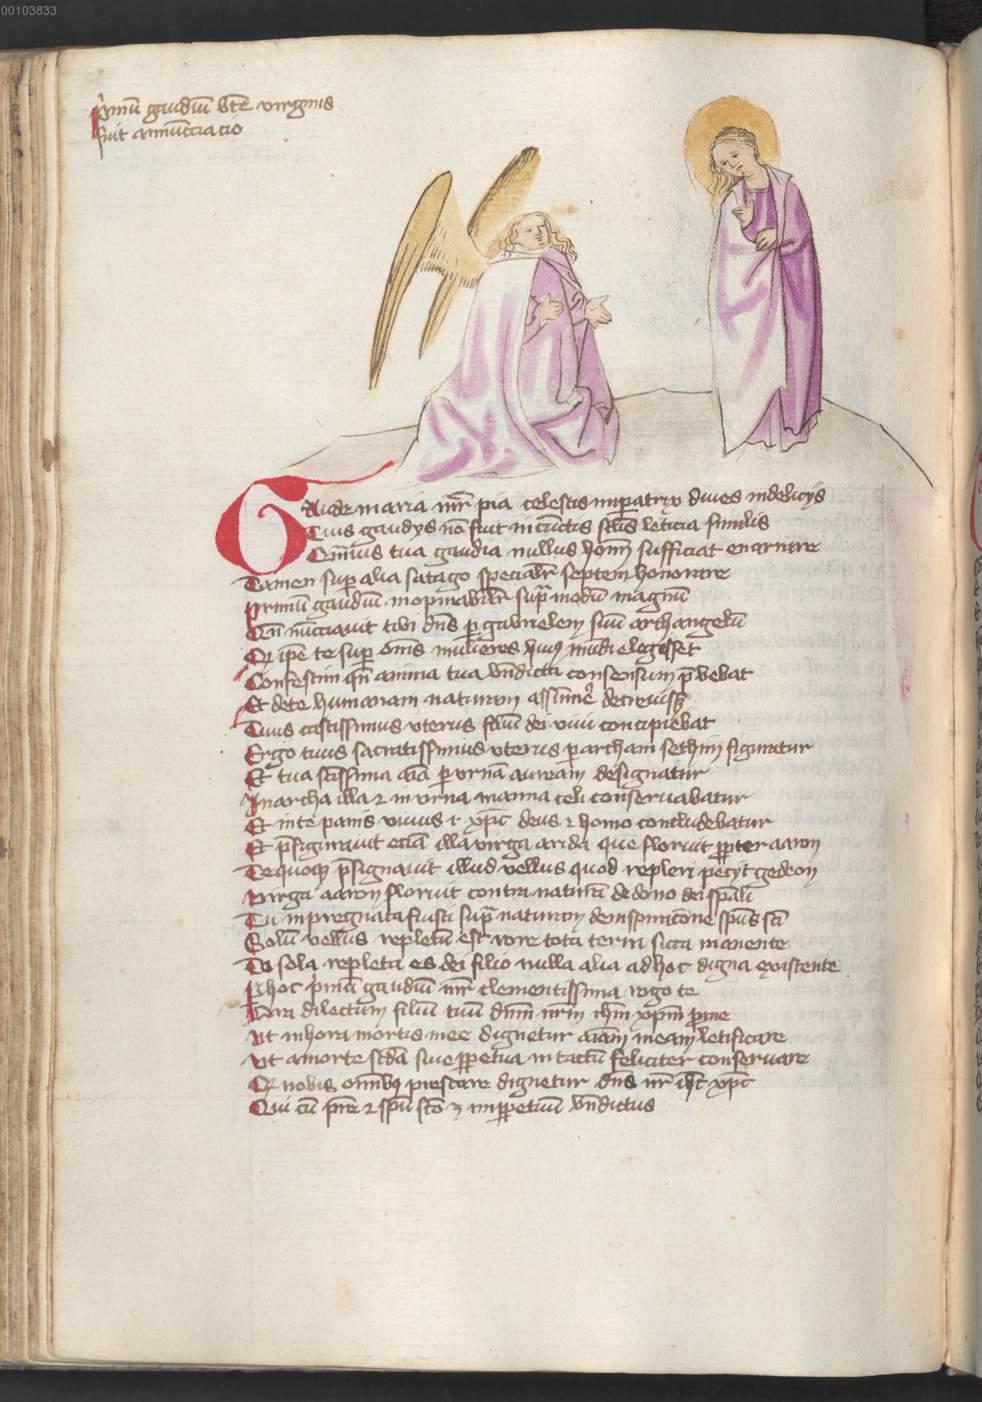 00103833
p'mū gaudiū bt̄e virginis
fuit annūcciacio
Gaude maria mr̄ pia celestis impatrix diues in delicijs
Tuis gaudijs nō fuit in cūctis sclis leticia similis
Qm̄uis tua gaudia nullus hom̄ sufficiat enarrare
Tamen sup alia satago specialr̄ septem honorare
Primū gaudiū inopinabilr̄ supͣ modū magnū
Qn̄ nūcciauit tibi dn̄s p gabrielem suū archangelū
Q ip̄e te sup om̄s mulieres huiꝯ mūdi elegisset
Et de te humanam naturam assūme decreuisset
Confestim qn̄ anima tua bn̄dicta consensum p̄bebat
Tuus castissimus vterus filiū dei viui concipiebat
Ergo tuus sacratissimus vterus p archam sethim figuratur
Et tua sc̄issima aīa p vrnā auream designatur
In archa illa ⁊ in vrna manna celi conseruabatur
Et in te panis viuus .i. xp̄c deus ⁊ homo concludebatur
Et p̄figurauit eciā illa virga arida que floruit ppter aaron
Te quoqꝫ p̄signauit illud vellus quod repleri peciit gedeon
Virga aaron floruit contra naturā de dono dei spāli
Tu inpregnata fuisti supͣ naturam de inspiracōne spūs sc̄i
Solū vellus repletū est rore tota terra sicca manente
Tu sola repleta es dei filio nulla alia ad hoc digna existente
P hoc p'mū gaudiū mr̄ clementissima rogo te
dilectum filiū tuū dn̄m nr̄m ih̄m xp̄m p me
Vt in hora mortis mee dignetur aīam meam letificare
Vt a morte sc̄da siue ppetua in tactū feliciter conseruare
Q nobis om̄ibꝫ prestare dignetur dn̄s nr̄ ih̄c xp̄c
Qui cū pr̄e ⁊ spū sc̄o ē imppetuū bn̄dictus